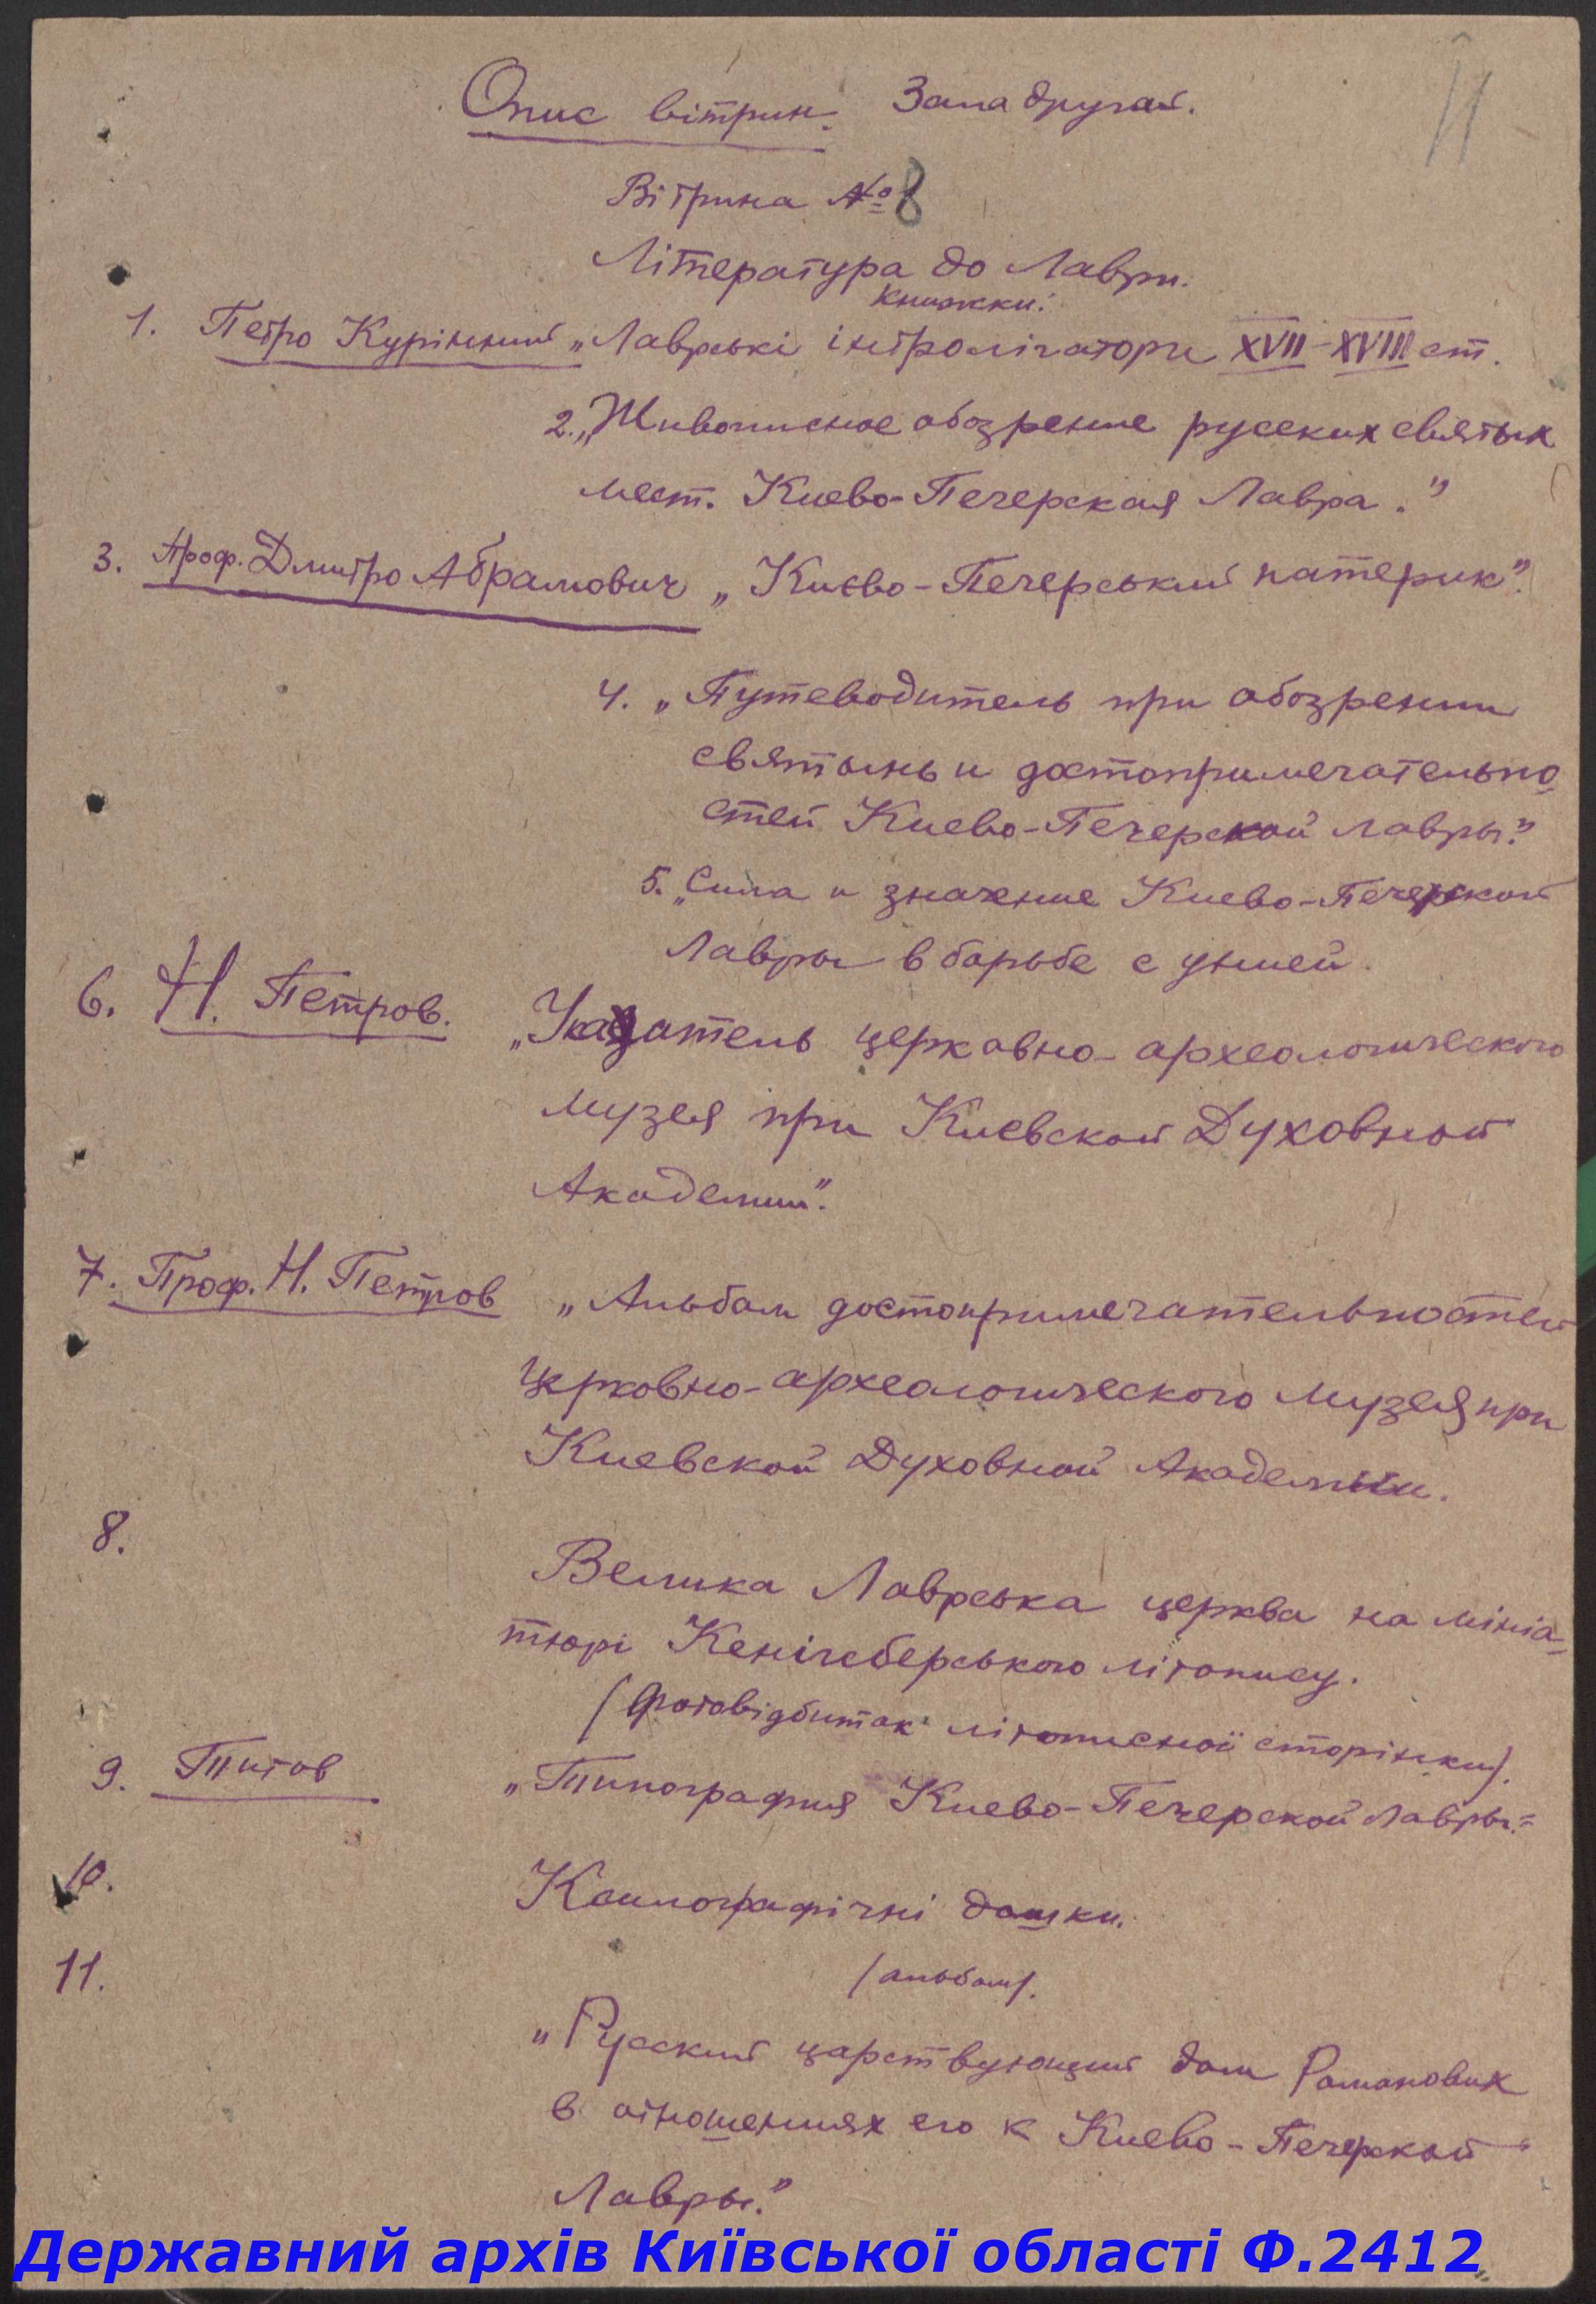 Опис вітрин. Зала другая.
11
Вітрина № 8
Література до Лаври.
Книжки:
1. Петро Курінний „Лаврські інтролігатори XVII-XVIII ст.
2. „Живописное обозрение русских святых
мест. Киево-Печерская Лавра."
3. Проф. Дмитро Абрамович „Києво-Печерський патерик".
4. „Путеводитель при обозрении
святынь и достопримечательно
стей Киево-Печерской лавры."
5. „Сила и значение Киево-Печерской
Лавры в борьбе с унией.
6. Н. Петров. „Указатель церковно-археологического
музея при Киевской Духовной
Академии".
7. Проф. Н. Петров „Альбом достопримечательностей
Церковно-археологического музея при
Киевской Духовной Академии.
8. Велика Лаврська церква на мініа-
тюрі Кенігсберського літопису.
/Фотовідбиток літописної сторінки/.
9. Титов „Типография Киево-Печерской Лавры."
10. Ксилографічні дошки.
11. /альбом/.
„Русский царствующий дом Романових
в отношениях его к Киево-Печерской
Лавры."
Державний архів Київської області Ф.2412